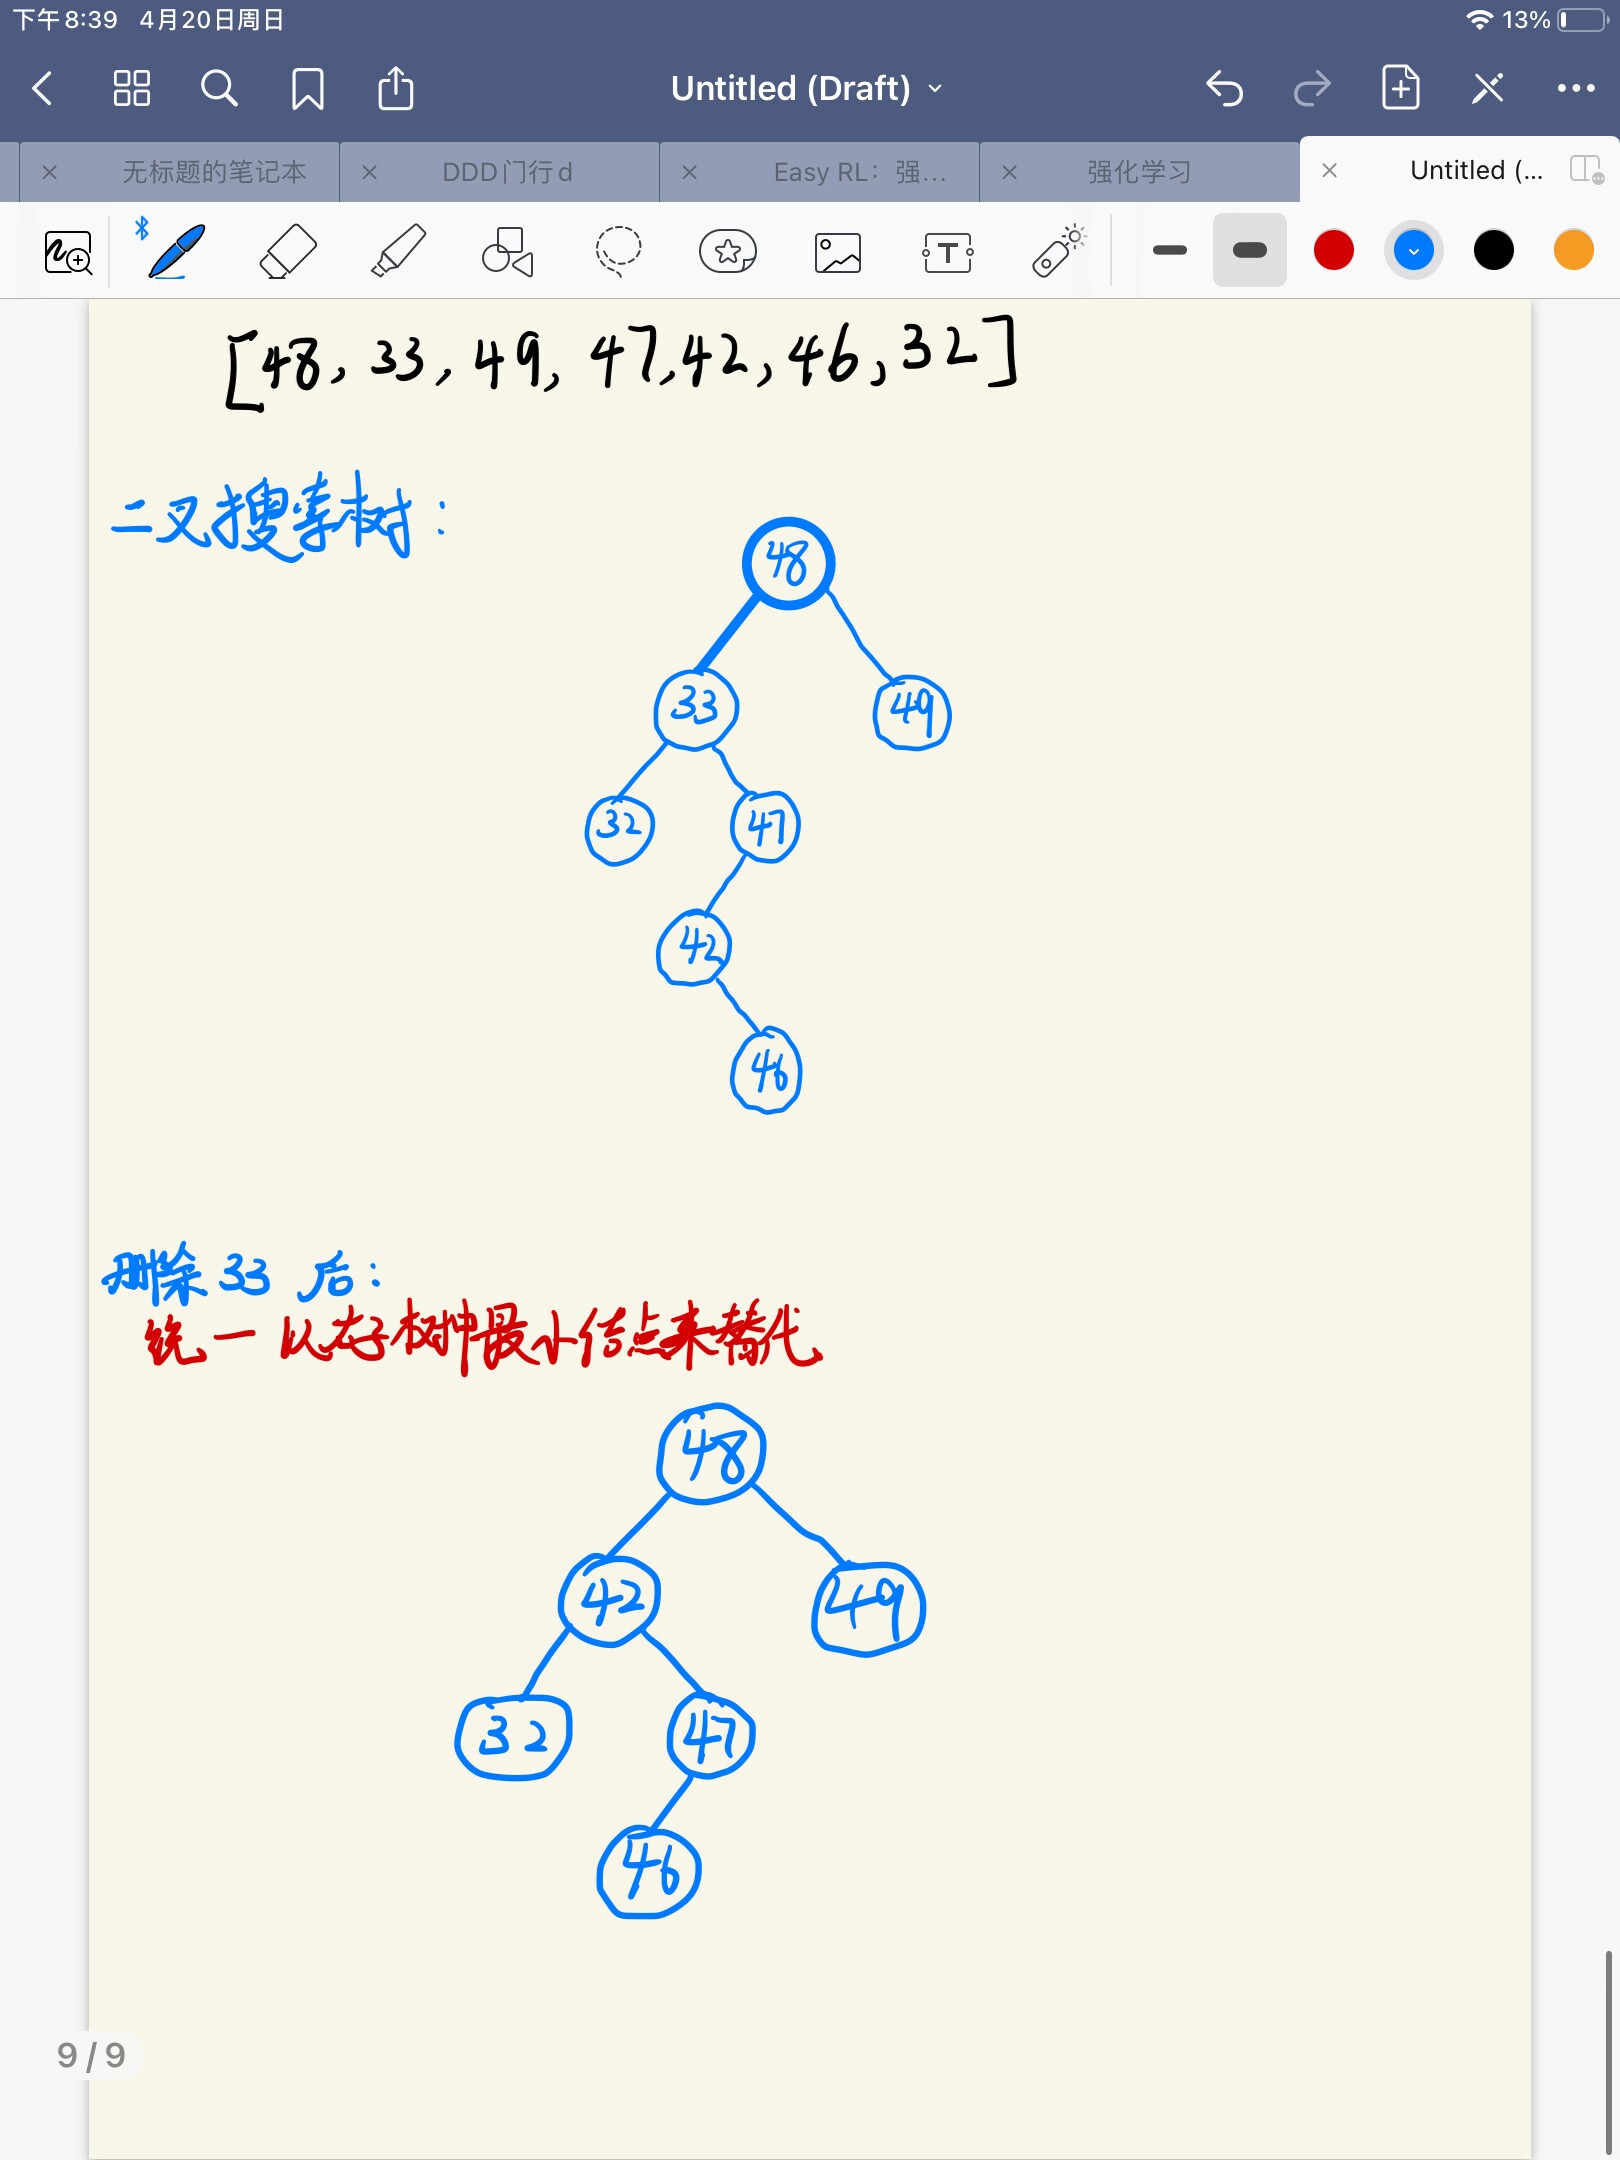 下午8:39 4月20日周日
13%
Untitled (Draft)
无标题的笔记本
DDD门行d
Easy RL：强...
强化学习
Untitled (...
T
[48, 33, 49, 47, 42, 46, 32]
二叉搜索树：
48
33 49
32 47
42
46
删除 33 后：
统一以右子树中最小结点来替代
48
42 49
32 47
46
9 / 9